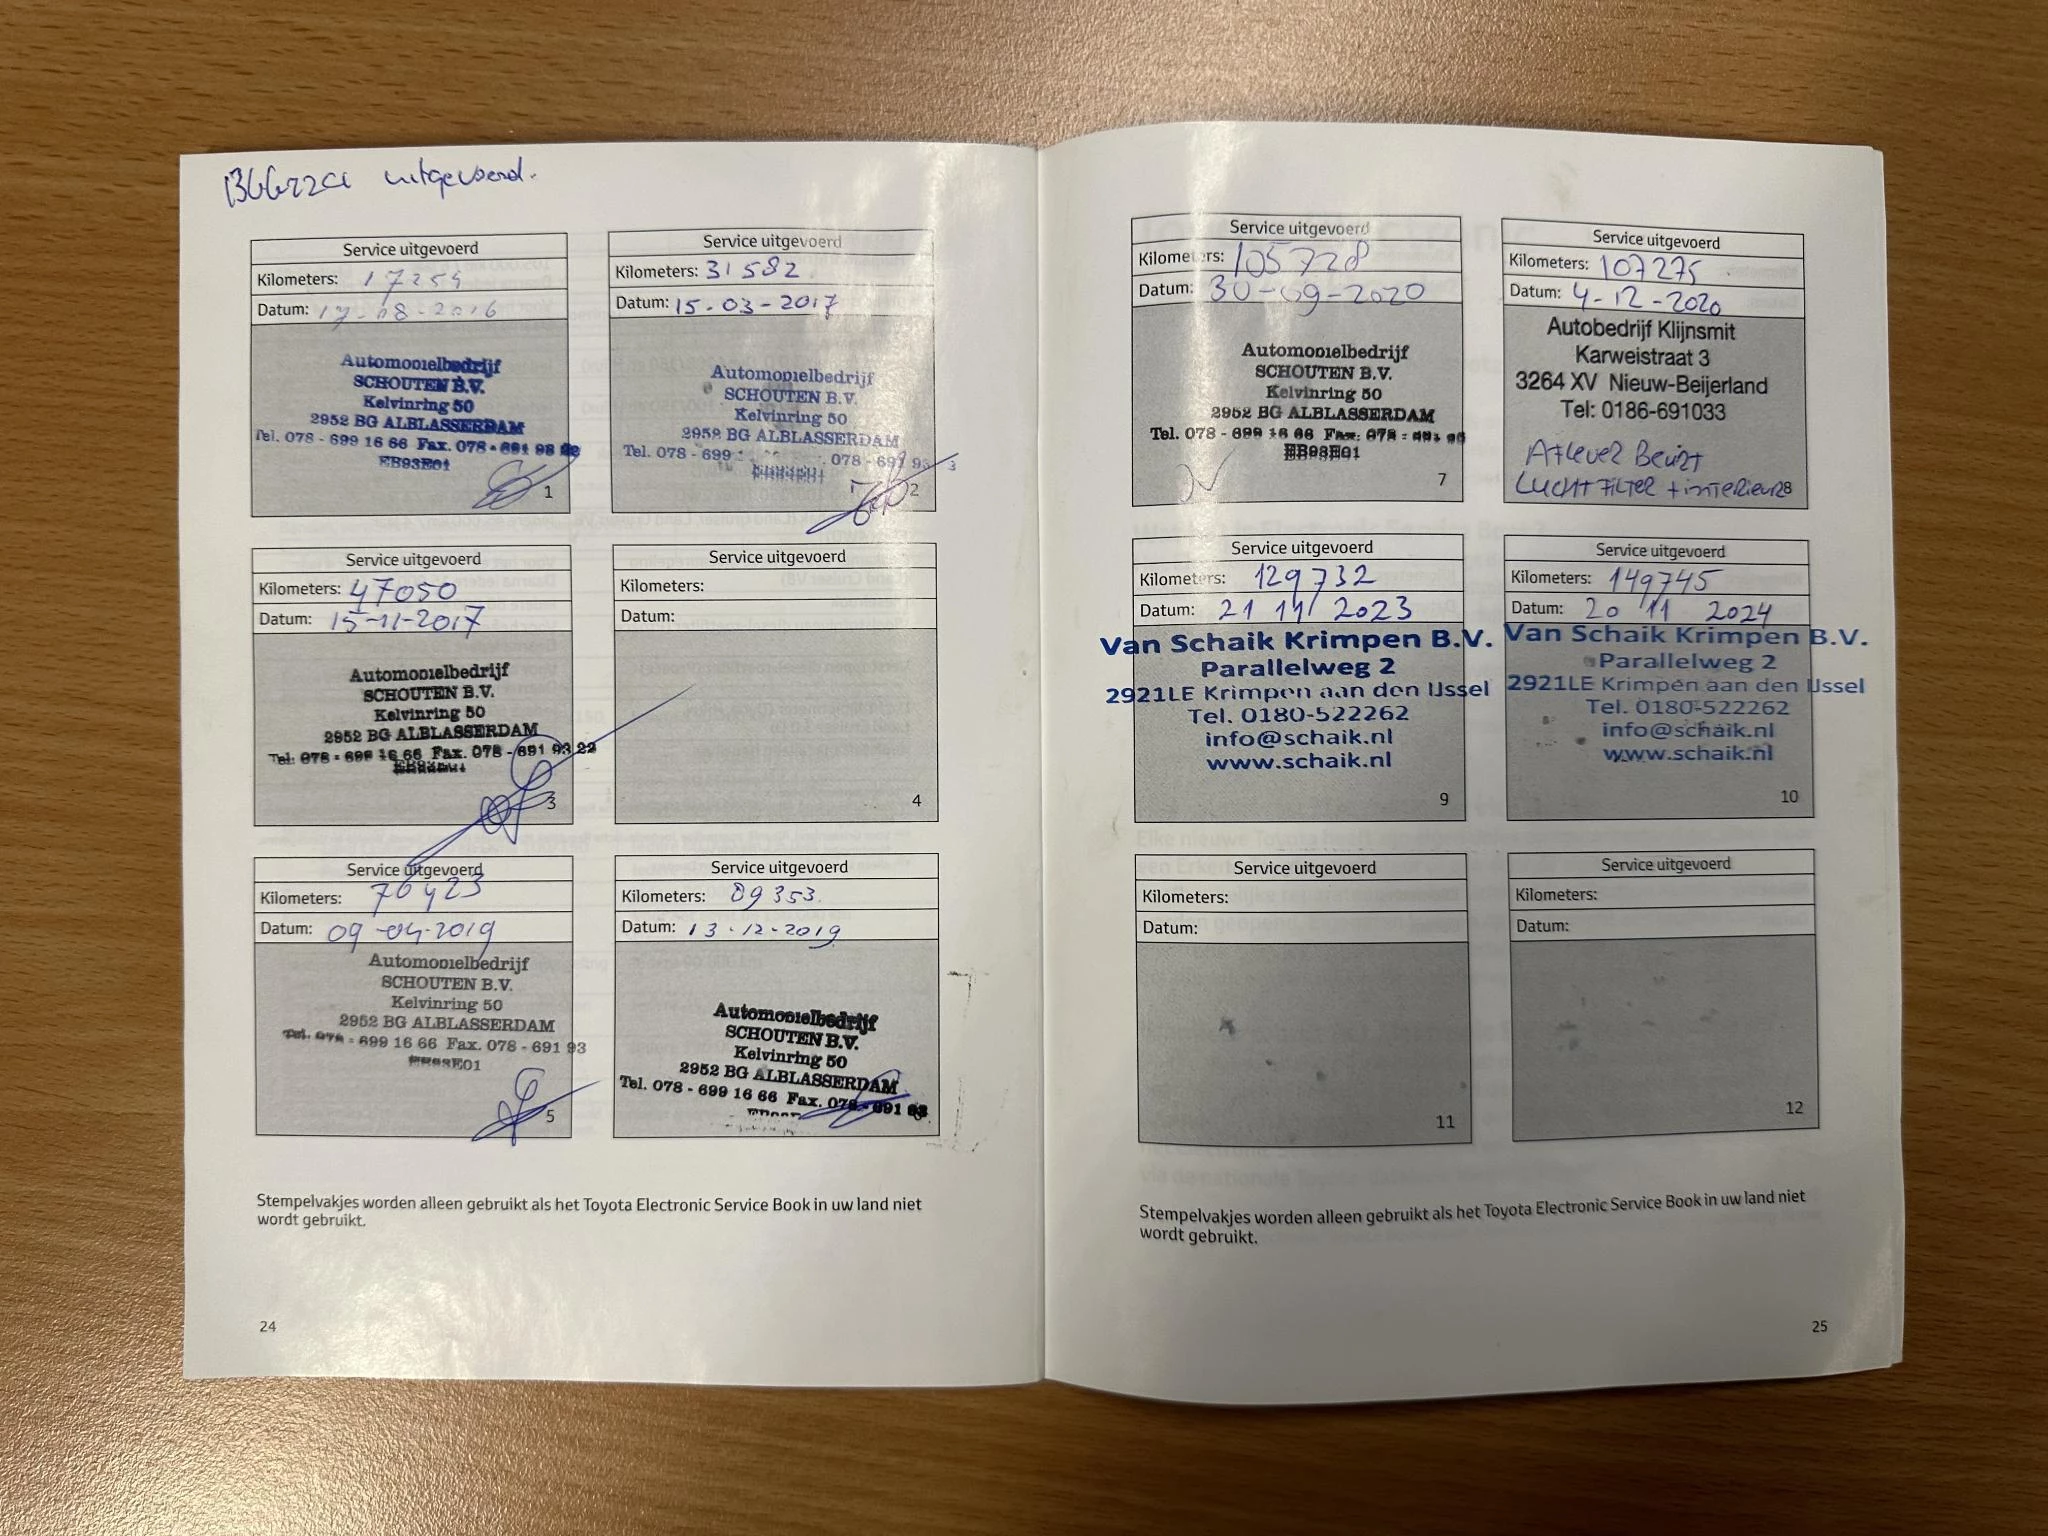 uitgevoerd.
Service uitgevoerd
Kilometers: 17254
Datum: 17-08-2016
Automobielbedrijf
SCHOUTEN B.V.
Kelvinring 50
2952 BG ALBLASSERDAM
Tel. 078 - 699 16 66 Fax. 078 - 691 93 22
EB93E01
1
Service uitgevoerd
Kilometers: 31582
Datum: 15-03-2017
Automobielbedrijf
SCHOUTEN B.V.
Kelvinring 50
2952 BG ALBLASSERDAM
Tel. 078 - 699 078 - 691 93
EB93E01
2
Service uitgevoerd
Kilometers: 47050
Datum: 15-11-2017
Automobielbedrijf
SCHOUTEN B.V.
Kelvinring 50
2952 BG ALBLASSERDAM
Tel. 078 - 699 16 66 Fax. 078 - 691 93 22
EB93E01
3
Service uitgevoerd
Kilometers:
Datum:
4
Service uitgevoerd
Kilometers: 76423
Datum: 09-04-2019
Automobielbedrijf
SCHOUTEN B.V.
Kelvinring 50
2952 BG ALBLASSERDAM
Tel. 078 - 699 16 66 Fax. 078 - 691 93
EB93E01
5
Service uitgevoerd
Kilometers: 89353
Datum: 13-12-2019
Automobielbedrijf
SCHOUTEN B.V.
Kelvinring 50
2952 BG ALBLASSERDAM
Tel. 078 - 699 16 66 Fax. 078 - 691 93
Stempelvakjes worden alleen gebruikt als het Toyota Electronic Service Book in uw land niet
wordt gebruikt.
24
Service uitgevoerd
Kilometers: 105728
Datum: 30-09-2020
Automobielbedrijf
SCHOUTEN B.V.
Kelvinring 50
2952 BG ALBLASSERDAM
Tel. 078 - 699 16 66 Fax. 078 - 691 93
EB93E01
7
Service uitgevoerd
Kilometers: 107275
Datum: 4-12-2020
Autobedrijf Klijnsmit
Karweistraat 3
3264 XV Nieuw-Beijerland
Tel: 0186-691033
Aflever Beurt
Luchtfilter + interieur
8
Service uitgevoerd
Kilometers: 129732
Datum: 21 11 2023
Van Schaik Krimpen B.V.
Parallelweg 2
2921LE Krimpen aan den IJssel
Tel. 0180-522262
info@schaik.nl
www.schaik.nl
9
Service uitgevoerd
Kilometers: 149745
Datum: 20 11 2024
Van Schaik Krimpen B.V.
Parallelweg 2
2921LE Krimpen aan den IJssel
Tel. 0180-522262
info@schaik.nl
www.schaik.nl
10
Service uitgevoerd
Kilometers:
Datum:
11
Service uitgevoerd
Kilometers:
Datum:
12
Stempelvakjes worden alleen gebruikt als het Toyota Electronic Service Book in uw land niet
wordt gebruikt.
25